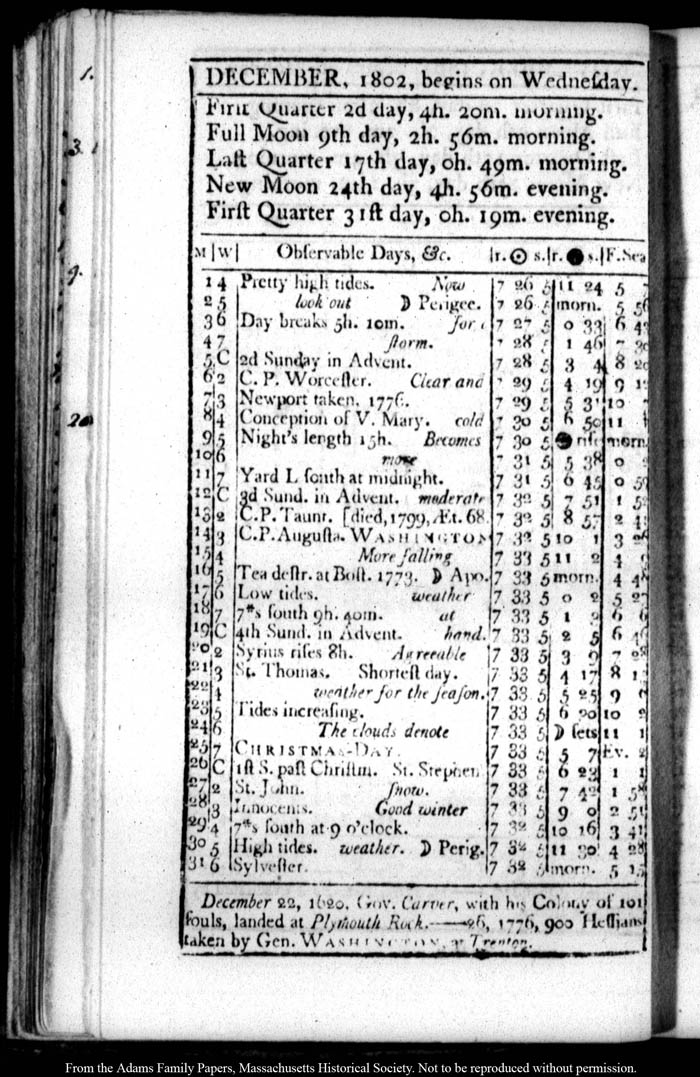 1.
3.
9.
20
DECEMBER, 1802, begins on Wedneſday.
Firſt Quarter 2d day, 4h. 20m. morning.
Full Moon 9th day, 2h. 56m. morning.
Laſt Quarter 17th day, 0h. 49m. morning.
New Moon 24th day, 4h. 56m. evening.
Firſt Quarter 31ſt day, 0h. 19m. evening.
M W Obſervable Days, &c. r. ☉ s. r. ● s. F. Sea
1 4 Pretty high tides. Now 7 26 5 11 24 5
2 5 look out ☽ Perigee. 7 26 5 morn. 5 56
3 6 Day breaks 5h. 10m. for 7 27 5 0 33 6 43
4 7 ſtorm. 7 28 5 1 46 7
5 C 2d Sunday in Advent. 7 28 5 3 4 8
6 2 C. P. Worceſter. Clear and 7 29 5 4 19 9
7 3 Newport taken, 1776. 7 29 5 5 31 10
8 4 Conception of V. Mary. cold 7 30 5 6 50 11
9 5 Night's length 15h. Becomes 7 30 5 ● riſe morn
10 6 more 7 31 5 5 38 0
11 7 Yard L ſouth at midnight. 7 31 5 6 45 0
12 C 3d Sund. in Advent. moderate 7 32 5 7 51 1
13 2 C.P. Taunt. [died, 1799, Æt. 68. 7 32 5 8 57 2
14 3 C.P. Auguſta. WASHINGTON 7 32 5 10 1 3
15 4 More falling 7 33 5 11 2 4
16 5 Tea deſtr. at Boſt. 1773. ☽ Apo. 7 33 5 morn. 4
17 6 Low tides. weather 7 33 5 0 2 5 27
18 7 7*s ſouth 9h. 40m. at 7 33 5 1 2 6 6
19 C 4th Sund. in Advent. hand. 7 33 5 2 5 6 46
20 2 Syrius riſes 8h. Agreeable 7 33 5 3 9 7 28
21 3 St. Thomas. Shorteſt day. 7 33 5 4 17 8
22 4 weather for the ſeaſon. 7 33 5 5 25 9
23 5 Tides increaſing. 7 33 5 6 20 10
24 6 The clouds denote 7 33 5 ☽ ſets 11 1
25 7 CHRISTMAS-DAY. 7 33 5 5 7 Ev.
26 C 1ſt S. paſt Chriſtm. St. Stephen 7 33 5 6 23 1
27 2 St. John. ſnow. 7 33 5 7 42 1
28 3 Innocents. Good winter 7 33 5 9 0 2
29 4 7*s ſouth at 9 o'clock. 7 32 5 10 16 3 41
30 5 High tides. weather. ☽ Perig. 7 32 5 11 30 4 28
31 6 Sylveſter. 7 32 5 morn. 5 15
December 22, 1620, Gov. Carver, with his Colony of 101
ſouls, landed at Plymouth Rock.——26, 1776, 900 Heſſians
taken by Gen. WASHINGTON, at Trenton.
From the Adams Family Papers, Massachusetts Historical Society. Not to be reproduced without permission.